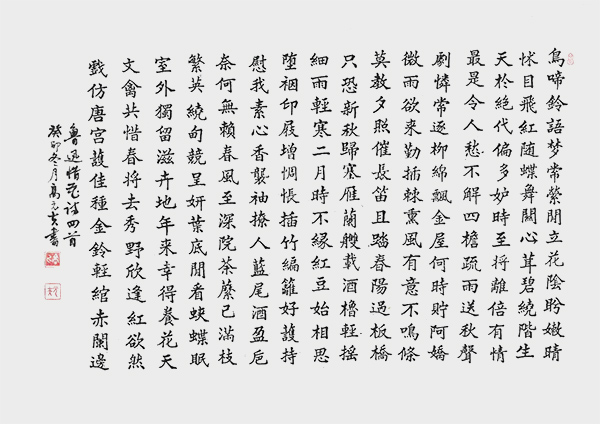 鳥啼鈴語梦常縈閒立花陰盼嫩晴
怵目飛紅随蝶舞關心茸碧繞階生
天於絕代偏多妒時至將離倍有情
最是令人愁不解四檐疏雨送秋聲
劇憐常逐柳綿飄金屋何時貯阿嬌
微雨欲来勤插棘熏風有意不鳴條
莫教夕照催長笛且踏春陽過板橋
只恐新秋歸塞雁蘭艭載酒櫓輕摇
細雨輕寒二月時不緣紅豆始相思
墮裀印屐增惆悵插竹編籬好護持
慰我素心香襲袖撩人藍尾酒盈卮
奈何無賴春風至深院荼蘼已滿枝
繁英繞甸競呈妍葉底閒看蛺蝶眠
室外獨留滋卉地年来幸得養花天
文禽共惜春將去秀野欣逢紅欲然
戲仿唐宫護佳種金鈴輕綰赤闌邊
魯迅惜花詩四首
癸卯冬月高元書